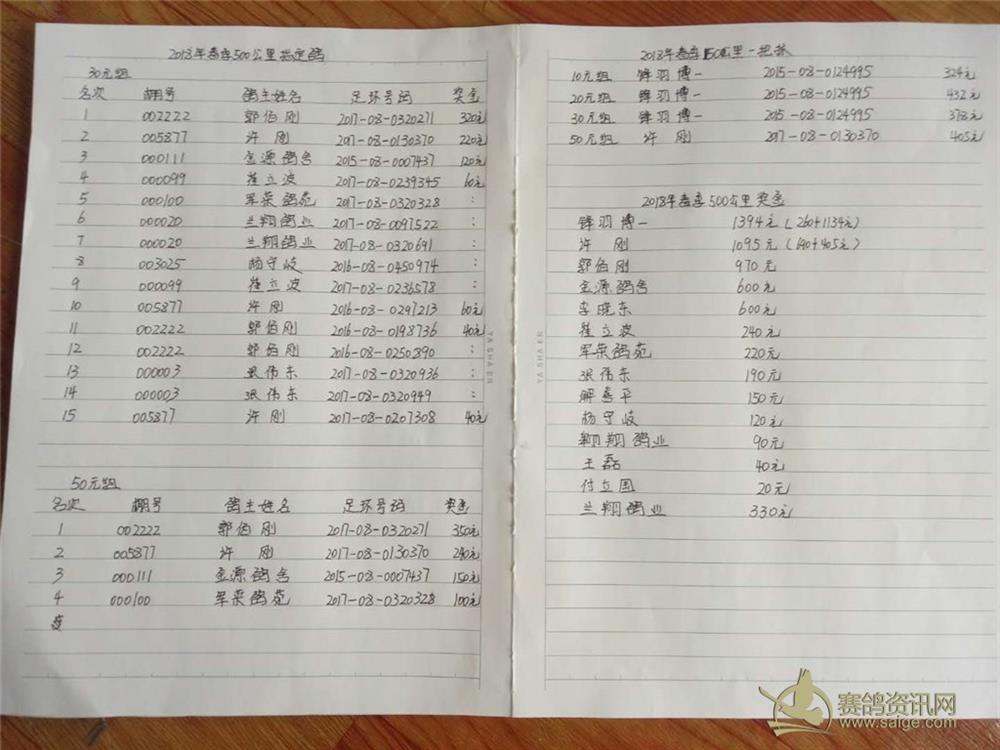 2018年春季500公里指定鸽
30元组
名次 棚号 鸽主姓名 足环号码 奖金
1 002222 郭伯刚 2017-08-0320271 320元
2 005877 许刚 2017-08-0130370 220元
3 000111 金源鸽舍 2015-08-0007437 120元
4 000099 崔立波 2017-08-0239345 60元
5 000100 军荣鸽苑 2017-08-0320328 :
6 000020 兰翔鸽业 2017-08-0097522 :
7 000020 兰翔鸽业 2017-08-0320691 :
8 003025 杨守岐 2016-08-0450974 :
9 000099 崔立波 2017-08-0236578 :
10 005877 许刚 2016-08-0297213 60元
11 002222 郭伯刚 2016-08-0198736 40元
12 002222 郭伯刚 2016-08-0250890 :
13 000003 张伟东 2017-08-0320936 :
14 000003 张伟东 2017-08-0320949 :
15 005877 许刚 2017-08-0207308 40元
50元组
名次 棚号 鸽主姓名 足环号码 奖金
1 002222 郭伯刚 2017-08-0320271 350元
2 005877 许刚 2017-08-0130370 240元
3 000111 金源鸽舍 2015-08-0007437 150元
4 000100 军荣鸽苑 2017-08-0320328 100元
YA SHA EN
2018年春季500公里一把抓
10元组 锋羽博一 2015-08-0124995 324元
20元组 锋羽博一 2015-08-0124995 432元
30元组 锋羽博一 2015-08-0124995 378元
50元组 许刚 2017-08-0130370 405元
2018年春季500公里奖金
锋羽博一 1394元(260+1134元)
许刚 1095元(690+405元)
郭伯刚 970元
金源鸽舍 600元
李晓东 600元
崔立波 240元
军荣鸽苑 220元
张伟东 190元
解喜平 150元
杨守岐 120元
翱翔鸽业 90元
王磊 40元
付立国 20元
兰翔鸽业 330元
YA SHA EN
赛鸽资讯网
www.saige.com